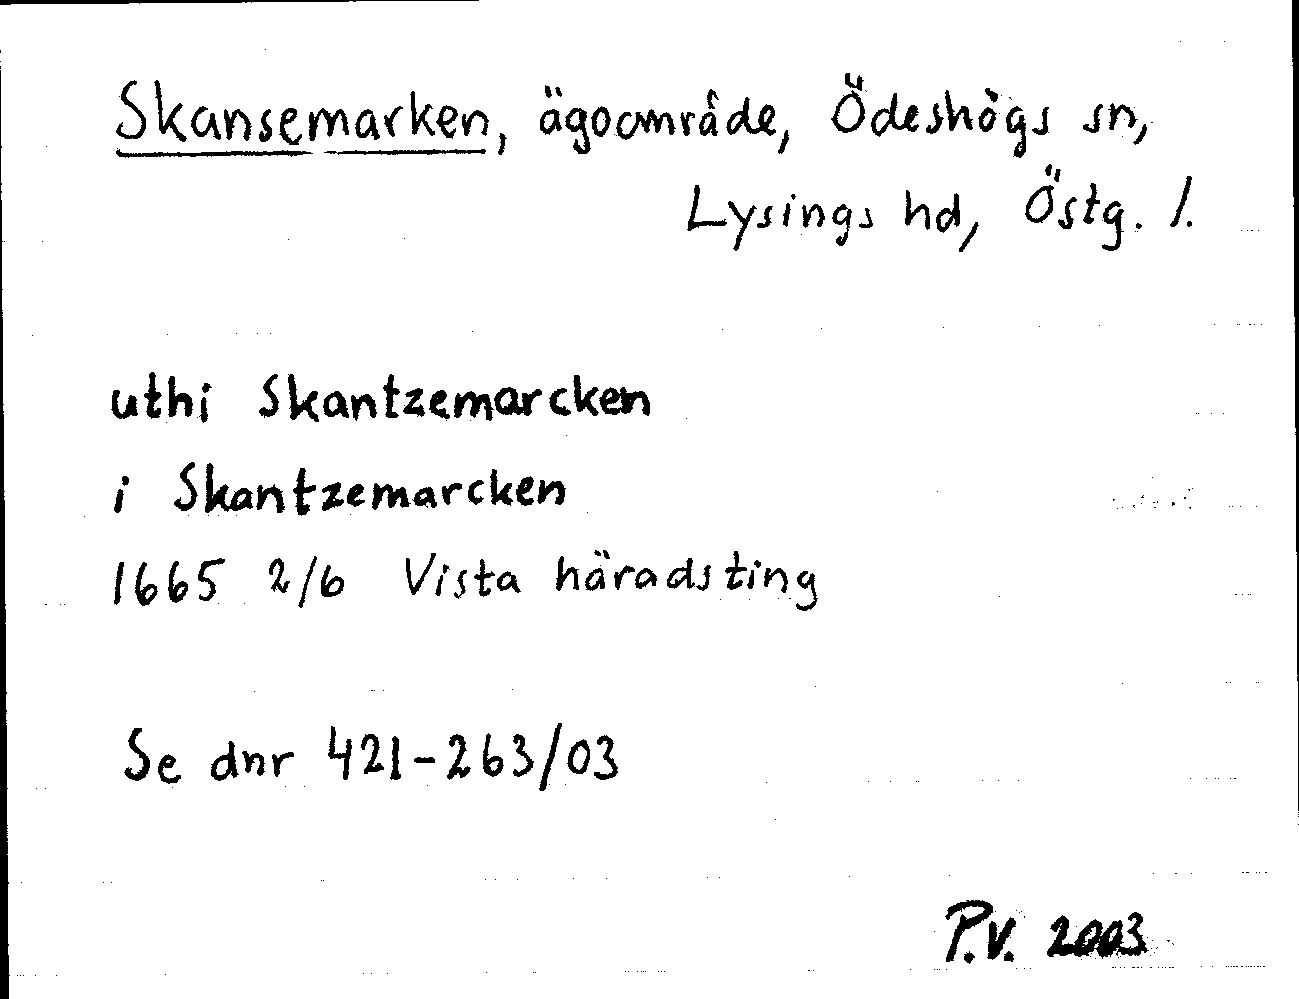 Skansemarken, ägoområde, Ödeshögs sn,
Lysings hd, Östg. l.
uthi Skantzemarcken
i Skantzemarcken
1665 2/6 Vista häradsting
Se dnr 421-263/03
P.V. 2003